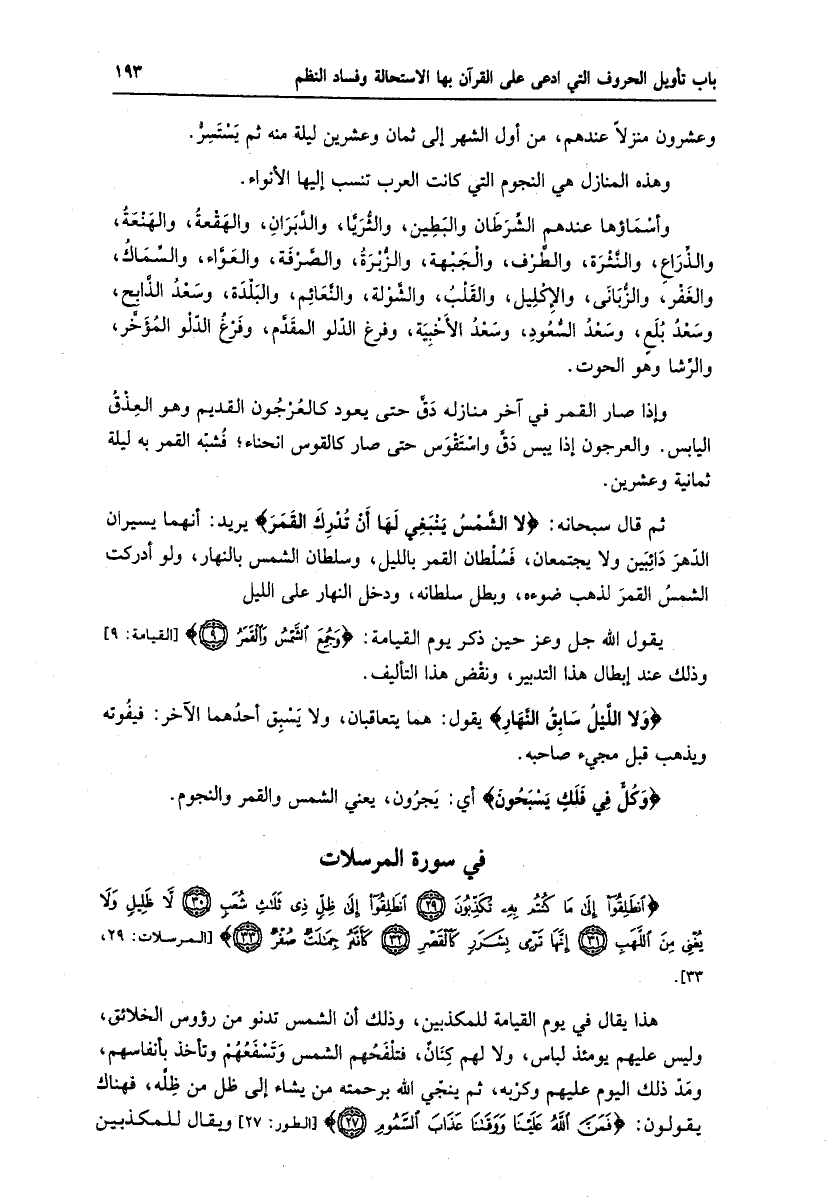 باب تأويل الحروف التي ادعى على القرآن بها الاستحالة وفساد النظم ١٩٣
وعشرون منزلاً عندهم، من أول الشهر إلى ثمان وعشرين ليلة منه ثم يَسْتَسِرُّ.
وهذه المنازل هي النجوم التي كانت العرب تنسب إليها الأنواء.
وأسْمَاؤها عندهم الشَّرَطَان والبَطِين، والثُّرَيَّا، والدَّبَرَانِ، والهَقْعةُ، والهَنْعَةُ،
والذِّرَاعِ، والنَّثْرَة، والطَّرْف، والْجَبْهة، والزُّبْرَةُ، والصَّرْفَة، والعَوَّاء، والسِّمَاكُ،
والغَفْر، والزُّبَانَى، والإكْلِيل، والقَلْبُ، والشَّوْلة، والنَّعَائِم، والبَلْدَة، وسَعْدُ الذَّابِح،
وسَعْدُ بُلَعٍ، وسَعْدُ السُّعودِ، وسَعْدُ الأَخْبِيَة، وفرغ الدّلو المقدَّم، وفَرْغُ الدّلو المُؤَخَّر،
والرِّشا وهو الحوت.
وإذا صار القمر في آخر منازله دَقَّ حتى يعود كالعُرْجُون القديم وهو العِذْقُ
اليابس. والعرجون إذا يبس دَقَّ واسْتَقْوَس حتى صار كالقوس انحناء؛ فُشبِّه القمر به ليلة
ثمانية وعشرين.
ثم قال سبحانه: ﴿لا الشَّمْسُ يَنْبَغِي لَهَا أَنْ تُدْرِكَ القَمَرَ﴾ يريد: أنهما يسيران
الدّهرَ دَائِبَين ولا يجتمعان، فَسُلْطان القمر بالليل، وسلطان الشمس بالنهار، ولو أدركت
الشمسُ القمرَ لذهب ضوءه، وبطل سلطانه، ودخل النهار على الليل
يقول الله جل وعز حين ذكر يوم القيامة: ﴿وَجُمِعَ ٱلشَّمْسُ وَٱلْقَمَرُ ٩﴾ [القيامة: ٩]
وذلك عند إبطال هذا التدبير، ونقْض هذا التأليف.
﴿وَلا اللَّيْلُ سَابِقُ النَّهَارِ﴾ يقول: هما يتعاقبان، ولا يَسْبِق أحدُهما الآخر: فيفُوته
ويذهب قبل مجيء صاحبه.
﴿وَكُلٌّ فِي فَلَكٍ يَسْبَحُونَ﴾ أي: يَجرُون، يعني الشمس والقمر والنجوم.
في سورة المرسلات
﴿ٱنطَلِقُوٓا۟ إِلَىٰ مَا كُنتُم بِهِۦ تُكَذِّبُونَ ٢٩ ٱنطَلِقُوٓا۟ إِلَىٰ ظِلٍّ ذِى ثَلَٰثِ شُعَبٍ ٣٠ لَّا ظَلِيلٍ وَلَا
يُغْنِى مِنَ ٱللَّهَبِ ٣١ إِنَّهَا تَرْمِى بِشَرَرٍ كَٱلْقَصْرِ ٣٢ كَأَنَّهُۥ جِمَٰلَتٌ صُفْرٌ ٣٣﴾ [المرسلات: ٢٩،
٣٣].
هذا يقال في يوم القيامة للمكذبين، وذلك أن الشمس تدنو من رؤوس الخلائق،
وليس عليهم يومئذ لباس، ولا لهم كِنَانٌ، فتلْفَحُهم الشمس وَتَسْفَعُهُمْ وتأخذ بأنفاسهم،
ومَدّ ذلك اليوم عليهم وكرْبه، ثم ينجّي الله برحمته من يشاء إلى ظل من ظِلِّه، فهناك
يقولون: ﴿فَمَنَّ ٱللَّهُ عَلَيْنَا وَوَقَىٰنَا عَذَابَ ٱلسَّمُومِ ٢٧﴾ [الطور: ٢٧] ويقال للمكذبين